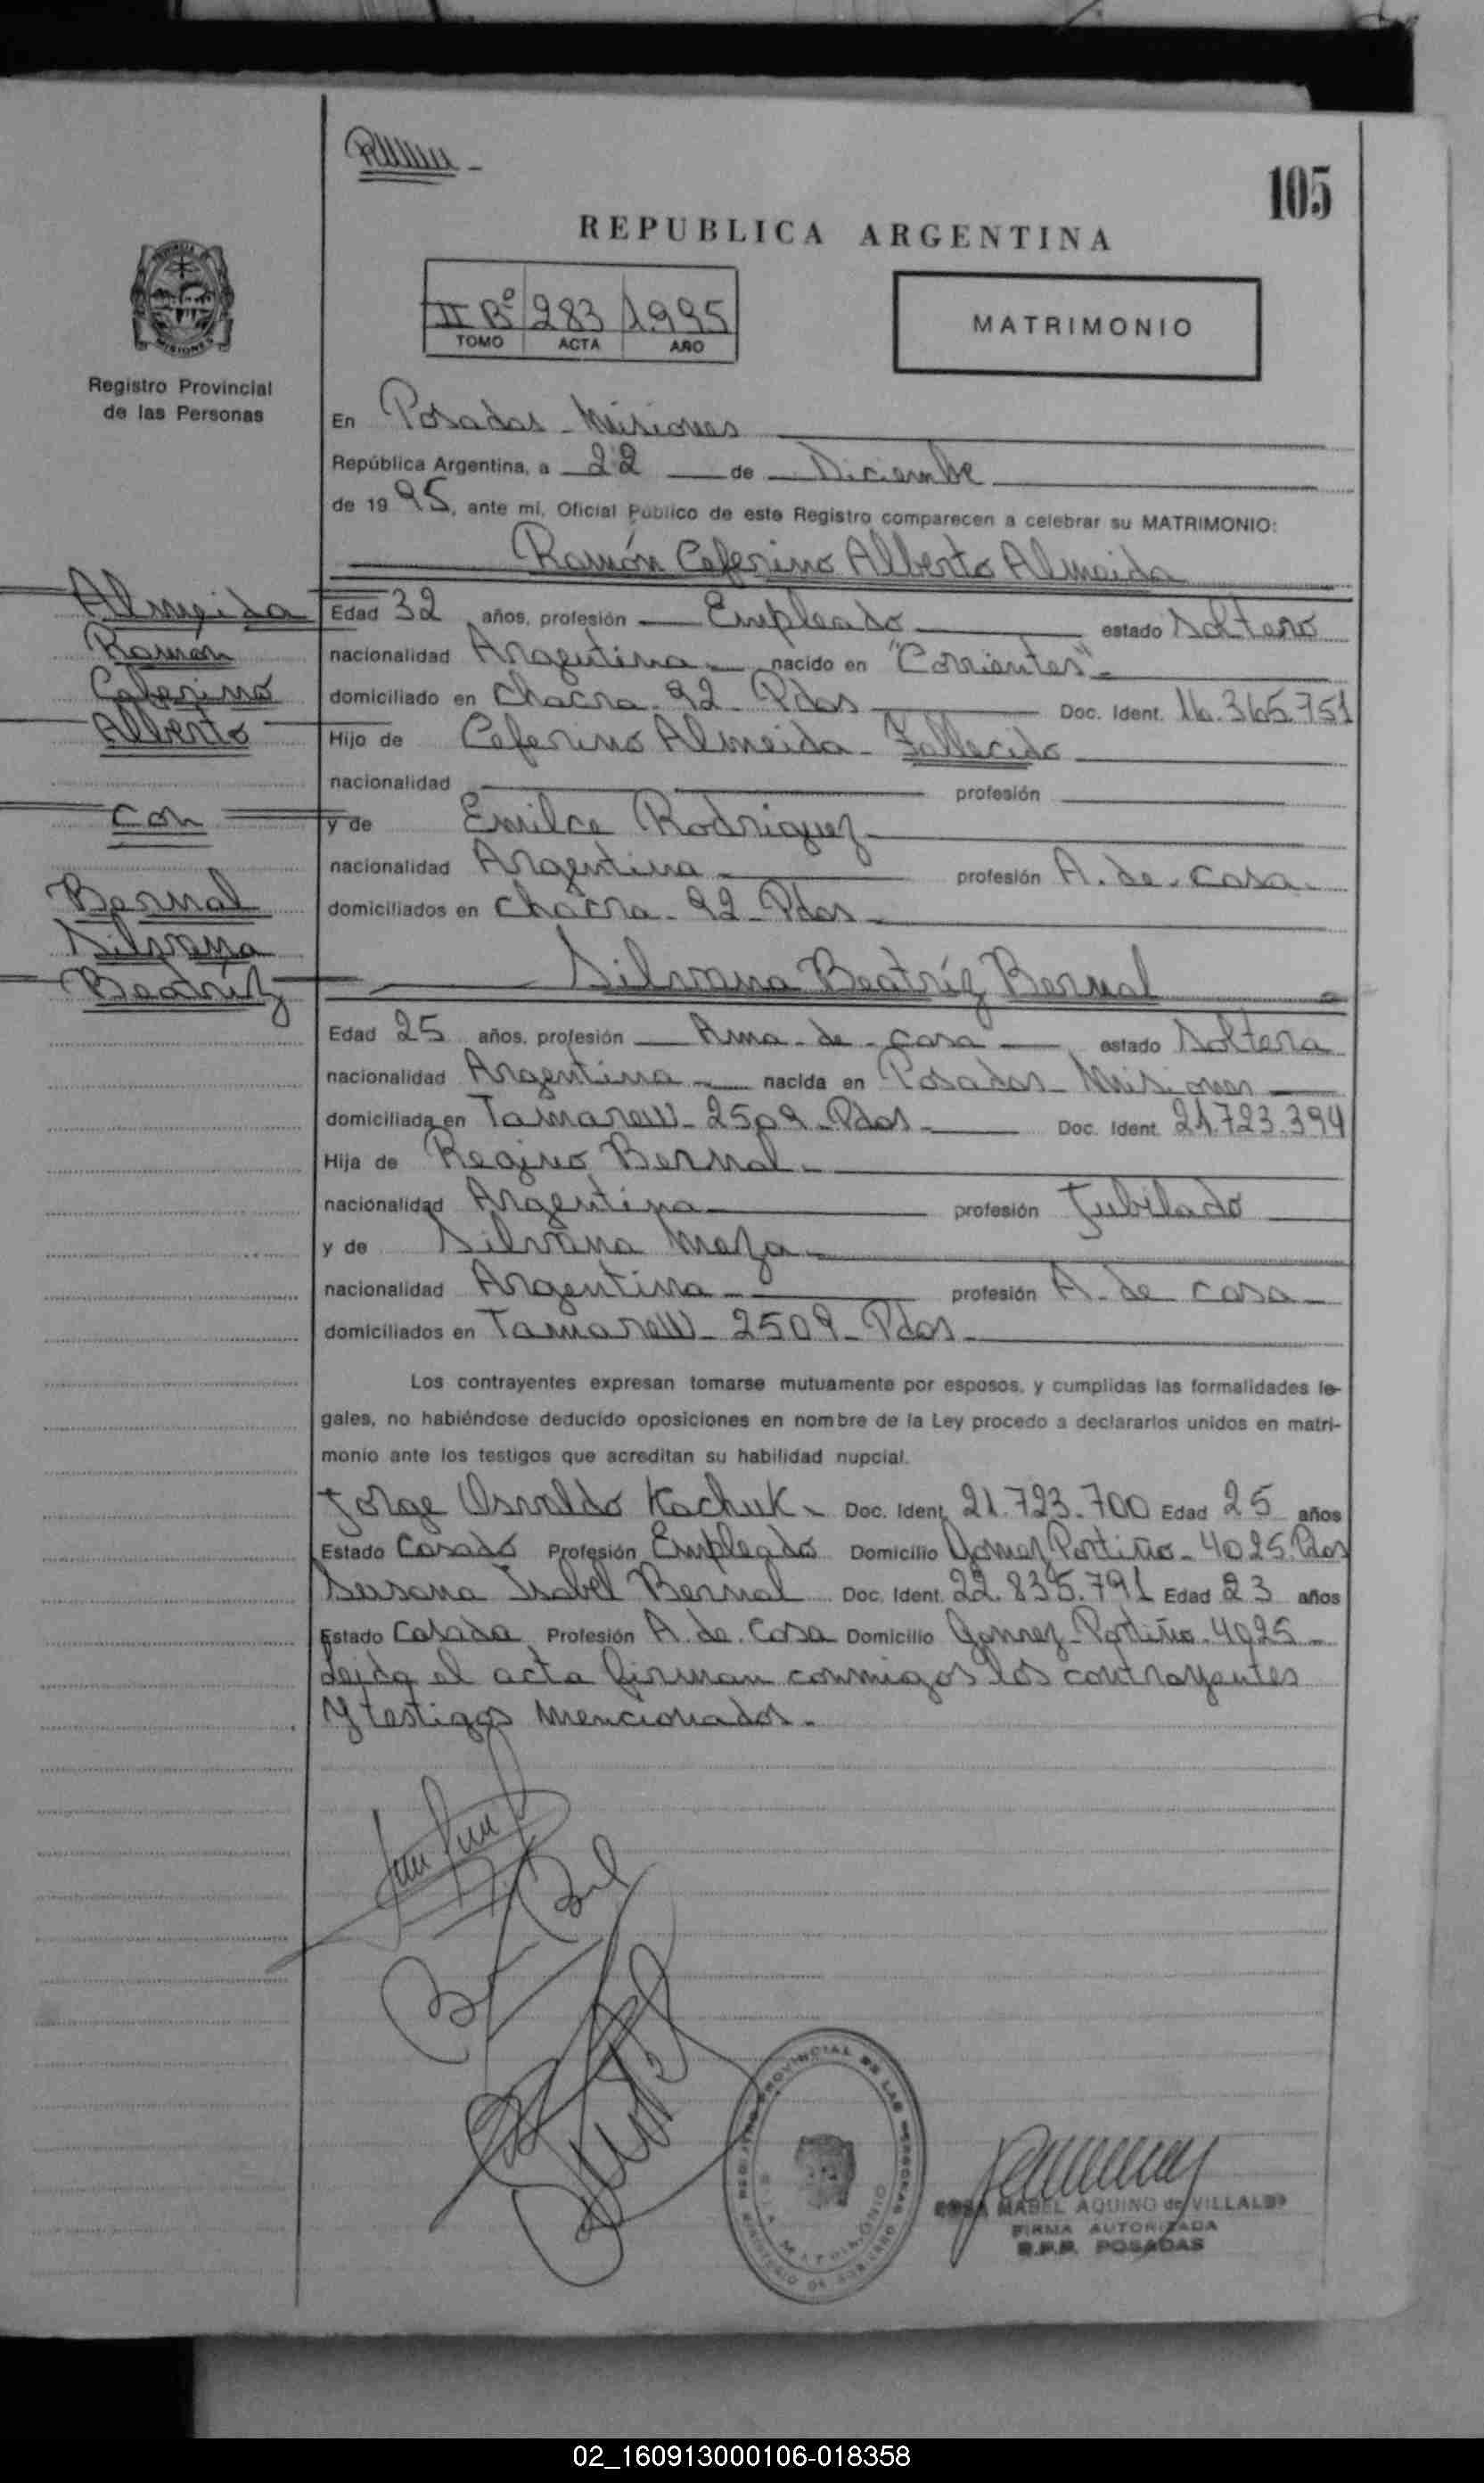 105
REPUBLICA ARGENTINA
II Bº 283 1995
TOMO ACTA AÑO
MATRIMONIO
Registro Provincial
de las Personas
En Posadas - Misiones
República Argentina, a 22 de Diciembre
de 1995, ante mí, Oficial Público de este Registro comparecen a celebrar su MATRIMONIO:
Ramón Ceferino Alberto Almeida
Almeida
Ramón
Ceferino
Alberto
con
Bernal
Silvana
Beatríz
Edad 32 años, profesión Empleado estado Soltero
nacionalidad Argentina nacido en "Corrientes"
domiciliado en Chacra - 92 - Pdas Doc. Ident. 16.365.751
Hijo de Ceferino Almeida - Fallecido
nacionalidad profesión
y de Emilce Rodriguez
nacionalidad Argentina profesión A. de. casa
domiciliados en Chacra - 92 - Pdas
Silvana Beatríz Bernal
Edad 25 años, profesión Ama - de - casa estado Soltera
nacionalidad Argentina nacida en Posadas - Misiones
domiciliada en 2509 - Pdas Doc. Ident. 21.723.394
Hija de Regino Bernal
nacionalidad Argentina profesión Jubilado
y de Silvana Meza
nacionalidad Argentina profesión A. de casa
domiciliados en 2509 - Pdas
Los contrayentes expresan tomarse mutuamente por esposos, y cumplidas las formalidades le-
gales, no habiéndose deducido oposiciones en nombre de la Ley procedo a declararlos unidos en matri-
monio ante los testigos que acreditan su habilidad nupcial.
Jorge Osvaldo Kachuk - Doc. Ident. 21.723.700 Edad 25 años
Estado Casado Profesión Empleado Domicilio Gomez Portiño - 4025. Pdas
Susana Isabel Bernal Doc. Ident. 22.835.791 Edad 23 años
Estado Casada Profesión A. de. Casa Domicilio Gomez - Portiño - 4025 -
Leida el acta firman conmigos los contrayentes
y testigos mencionados -
MABEL AQUINO de VILLALBA
FIRMA AUTORIZADA
R.P.P. POSADAS
02_160913000106-018358